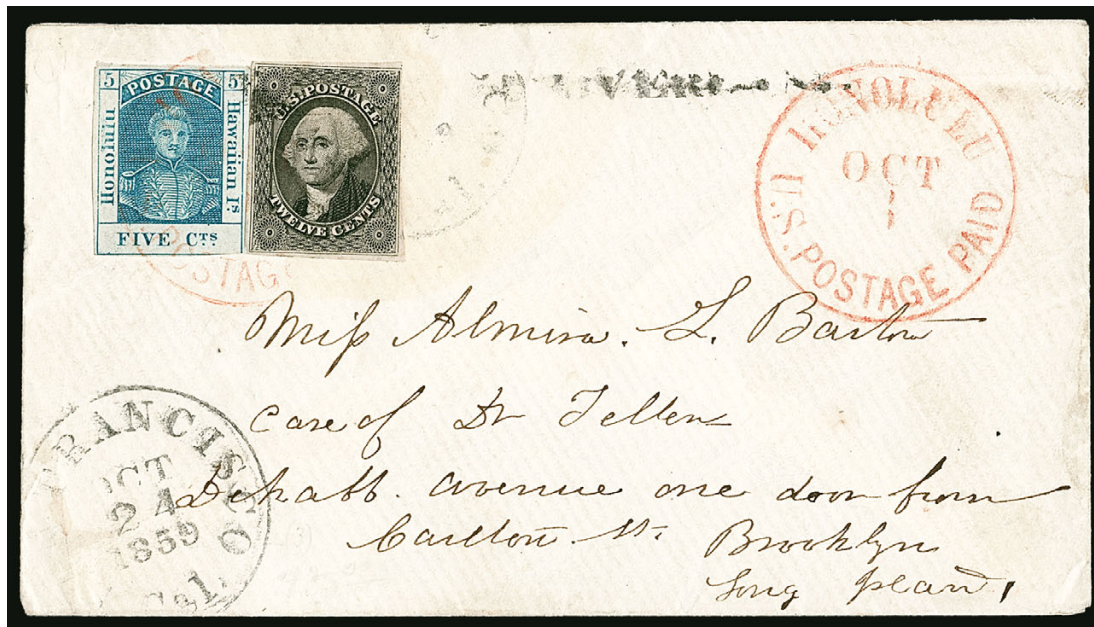 5 POSTAGE 5
Honolulu
Hawaiian Is.
FIVE CTS
U.S. POSTAGE
TWELVE CENTS
POSTAGE
HONOLULU
OCT
1
U.S. POSTAGE PAID
Miss Almira. L. Barton
Care of Dr Teller
Dekalb. avenue one door from
Carlton St. Brooklyn
Long Island,
FRANCISCO
OCT
24
1859
Cal.